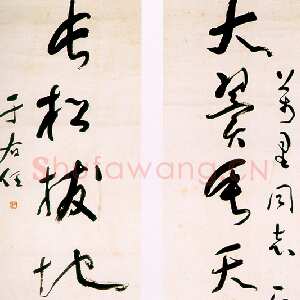 萬里同志
大翼垂天
長松拔地
于右任
Shufawang.CN